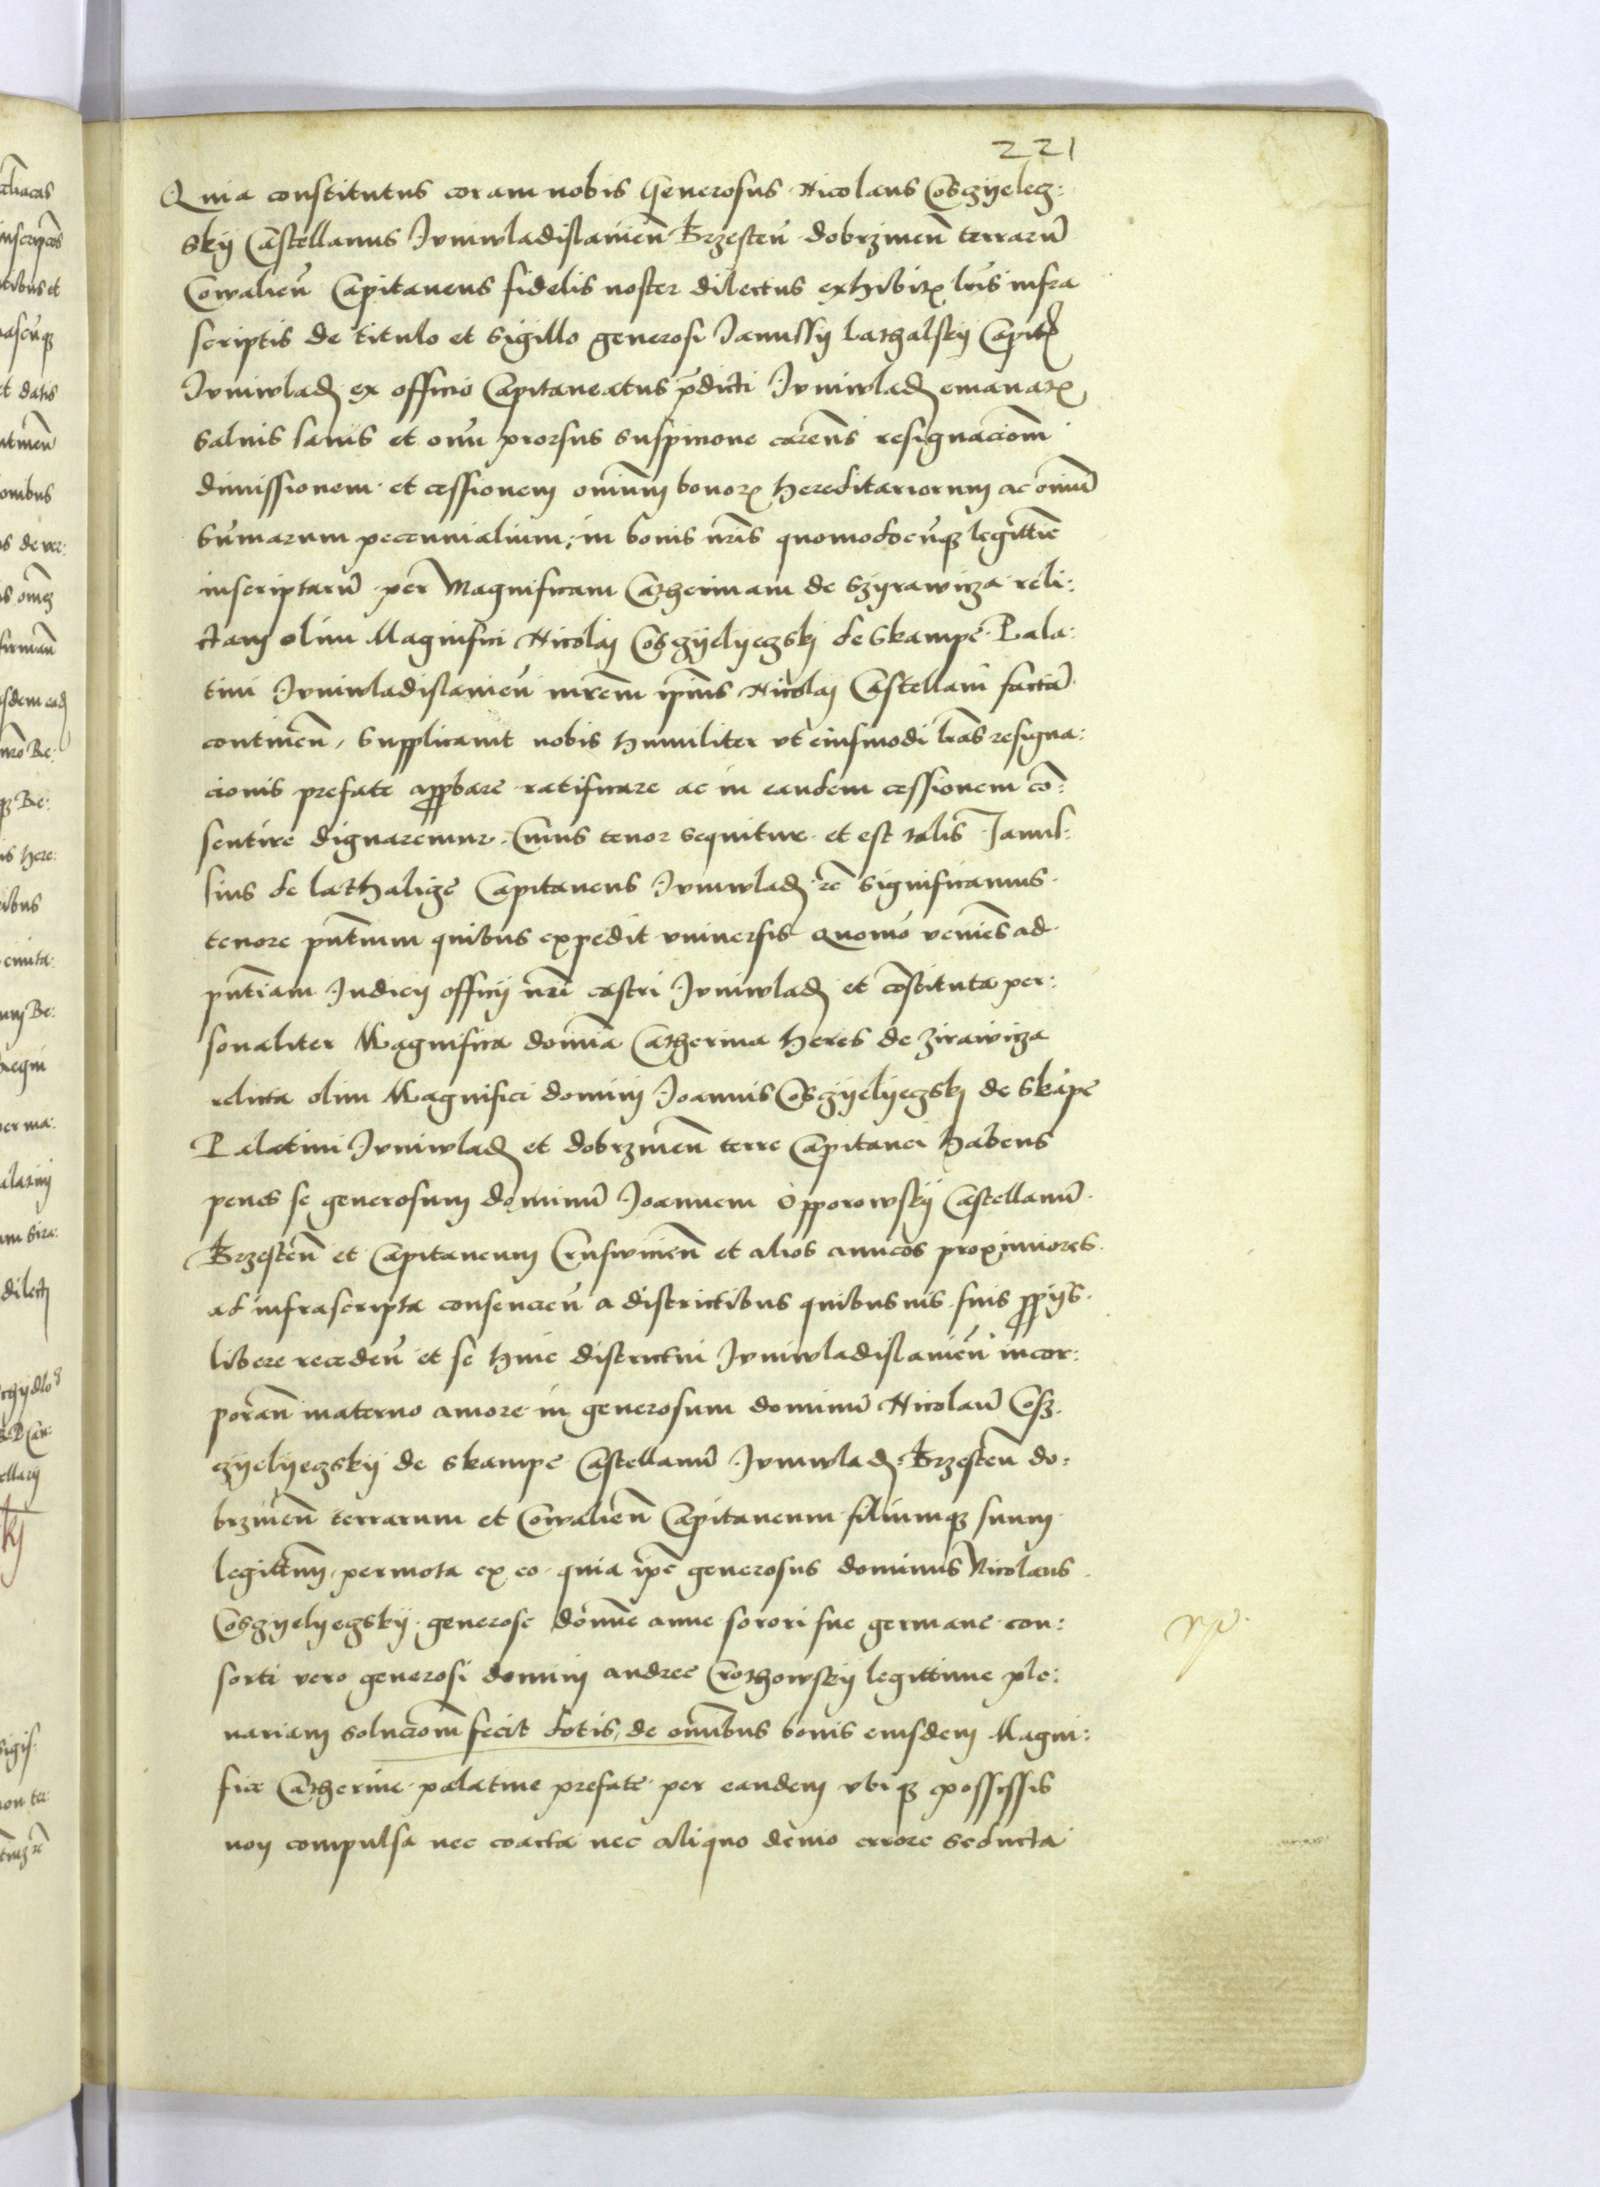 221
Quia constitutus coram nobis Generosus Nicolaus Cosczyelecz:
skij Castellanus Juniwladislavień Brzesteń dobrzineń terrarū
Cowalień Capitaneus fidelis noster dilectus exhibitꝝ lr̃is infra
scriptis de titulo et sigillo generosi Janussij Lathalskij Capitꝭ
Juniwlad ex officio Capitaneatus p̄dicti Juniwlad emanatꝝ
salvis sanis et om̄i prorsus suspicione careñs resignaciōem
dimissionem et cessionem om̄ium bonorꝝ hereditariorum ac om̄iū
sum̄arum pecunialium, in bonis nr̄is quomodocūqꝫ legittīe
inscriptarū per Magnificam Catherinam de Szyrawicza reli:
ctam olim Magnifici Nicolaj Cosczyelyeczskj de Skampe Pala:
tini Juniwladislavień in rem ip̄ius Nicolaj Castellani factā
contineñ, Supplicavit nobis humiliter ut eiusmodi lr̄as resigna:
cionis prefate app̄bare ratificare ac in eandem cessionem cō:
sentire dignaremur. Cuius tenor sequitur et est talis Janus:
sius de Lathalicze Capitaneus Juniwlad ꝛc̄ significamus
tenore pn̄tium quibus expedit universis Quomō venieñs ad
pn̄tiam Judicij officij nr̄i castri Juniwlad et cōstituta per:
sonaliter Magnifica domina Catherina heres de Zirawicza
relicta olim Magnifici domini Joannis Cosczyelyeczskj de Skāpe
Palatini Juniwlad et dobrzineñ terre Capitanei habens
penes se generosum dominū Joannem Opporowskij Castellanū
Brzesteñ et Capitaneum Cruswicieñ et alios amicos proximiores
ad infrascripta consencień a districtibus quibusuis suis p̄prijs
libere recedeñ et se huic districtui Juniwladislavień incor:
porañ materno amore in generosum dominū Nicolaū Cosz:
czyelyeczskij de Skampe Castellanū Juniwlad Brzesteñ do:
brzineñ terrarum et Cowalieñ Capitaneum filiumqꝫ suum
legittm̄, permota ex eo quia ip̄e generosus dominus Nicolaus
Cosczyelyeczskij generose domine anne sorori sue germane con:
sorti vero generosi domini andree Crothowskij legittime ple:
nariam soluciōem fecit dotis, de om̄ibus bonis eiusdem Magni:
fice Catherine palatine prefate per eandem ubiqꝫ possissis
non compulsa nec coacta nec aliquo devio errore seducta